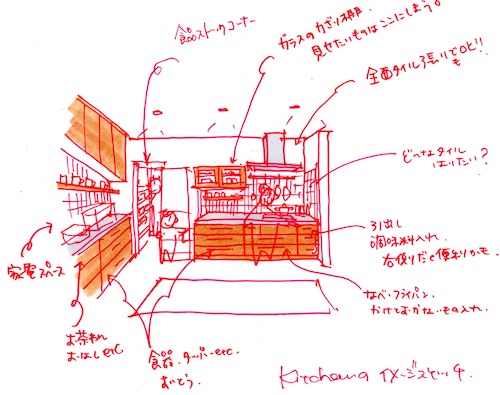 食品ストックコーナー
ガラスのかざり棚。
見せたいものはここにしまう。
全面タイル張りでもOK!!
どんなタイル
はりたい？
引出し
調味料入れ。
右側だと便利かも。
家電スペース
お茶わん
おはしetc
食器、タッパーetc.
なべ・フライパン。
かけておかないもの入れ。
Kitchenのイメージスケッチ